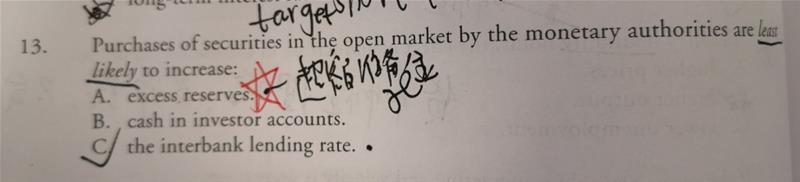 long-term
target
13. Purchases of securities in the open market by the monetary authorities are least
likely to increase:
A. excess reserves.
B. cash in investor accounts.
C. the interbank lending rate.